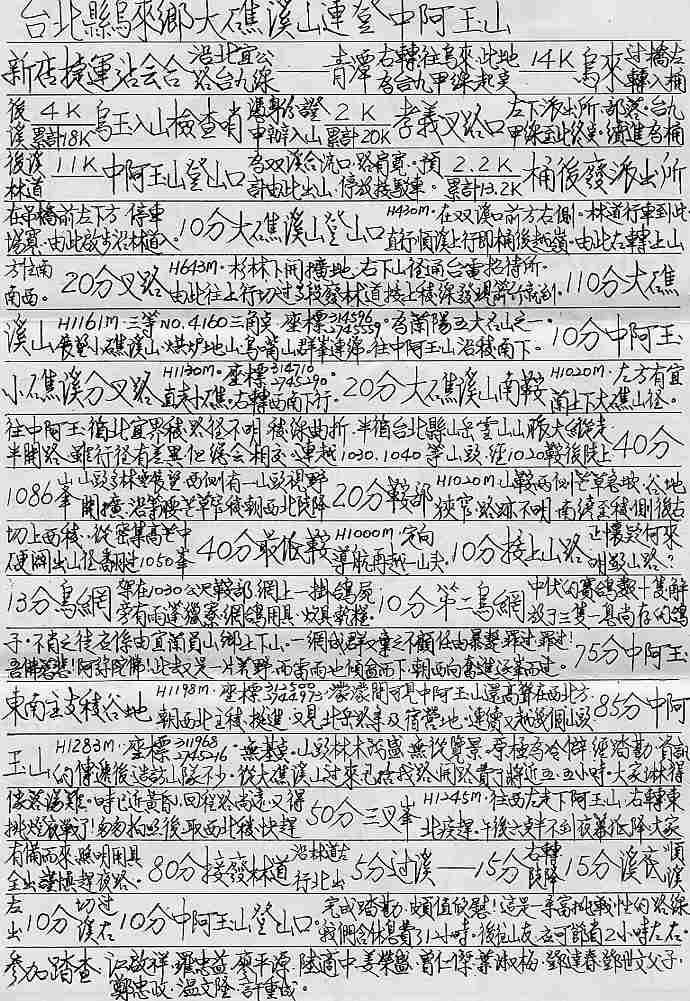 台北縣烏來鄉大礁溪山連登中阿玉山
新店捷運站会合 沿北宜公路台九線 青潭 右轉往烏來,此地為台九甲線起英 14K 烏來 过橋左轉入桶
後溪 4K 累計18K 烏玉入山檢查哨 憑身份證申辦入山 2K 累計20K 孝義叉路口 左下派出所、部落,台九甲線至此終点,續進為桶
後溪林道 11K 中阿玉山登山口 為双溪合流口,路肩寬,預計由此出山,停放接駁車。 2.2K 累計13.2K 桶後發派出所
在吊橋前左下方停車場,由此啟步沿林道入。 10分大礁溪山登山口 H430m,在双溪口前方右側。林道行車到此,直行順溪上行即桶後越嶺,由此左轉上山
方往南南西。 20分叉路 H643m,杉林下開擴地,右下山径通台電招待所,由此往上行切过 110分大礁
溪山 H1161m,三等No.4160三角点,座標314596 2745559。為蘭陽五大名山之一。展望小礁溪山、烘炉地山、烏 山群峯連綿,往中阿玉山沿稜南下。 10分中阿玉
小礁溪分叉路 H1130m。座標314710 2745290。直走小礁,右轉西南下行。 20分大礁溪山南鞍 H1020m,左方有宜蘭上下大礁山径。
往中阿玉循北宜界稜,路径不明,稜線曲折,半循台北縣山岳雲山山 半開路,雖行径有差異但總会相交。連越1030.1040等山頭,經1020鞍後陡上 40分
1086峯 山頭林蔽,展望西側有一山頭視野開擴,沿箭 芒草 稜朝西北陡降 20分鞍部 H1020m,山鞍西側芒草 谷地狹窄,路跡不明,南繞至稜側後右
切上西稜,從密集高芒中硬闢出山径番 1050峯 40分最低鞍 H1000m,定向導航再越一山头。 10分接上山路 正懷疑何來明 山路?
13分鳥網 架在1030公尺鞍部,網上一掛鴿屍,旁有雨蓬獵寮,網鴿用具、炊具齊 。 10分第二鳥網 中伏的賽鴿數十隻,解放了三隻一息尚存的鴿
子。不肖之徒应係由宜蘭員山鄉上下山。一網成群,棄之不顧,任由暴斃,罪过罪过!吾佛慈悲!阿弥陀佛!此去又是一片荒野,雨奮雨也傾盆而下,朝西向奮進,逐峯而过。 75分中阿玉
東南主支稜谷地 H1198m。座標312599 2744993。濛濛間可見中阿玉山還高聳在西北方,朝西北主稜挺進,又見北岳路条及宿營地,連續又越幾個山頭 85分中阿
玉山 H1283m,座標311968 2745246。無基点,山頭林木 盛,無從覽景。原極為冷僻,經踏勘資訊的傳遞後造訪山隊不少。從大礁溪山过來已在找路、開路費了將近五.五小時,大家淋得
像落湯雞。時已近黃昏,回程路尚遠,又得挑燈夜戰了!匆匆拍照後,取西北稜快趕 50分三叉峯 H1245m。往西左走下阿玉山,右轉東北疾趕。午後六点半不到夜幕低降,大家
有備而來,照明用具全出,謹慎趕夜路。 80分接發林道 沿林道左行北出 5分过溪 15分 右轉陡降 15分溪底 順溪
左出 10分 切过溪右 10分中阿玉山登山口。 完成踏勘,頗值欣慰!這是一条富挑戰性的路線,我們含休息費了11小時。後 山友应可節省2小時左右。
參加踏查:江啟祥、羅忠益、廖平源、陸商中、姜榮盛、曾仁傑、葉淑梅、鄧達春、鄧世文父子、
鄭忠政、溫文隆、許重成。